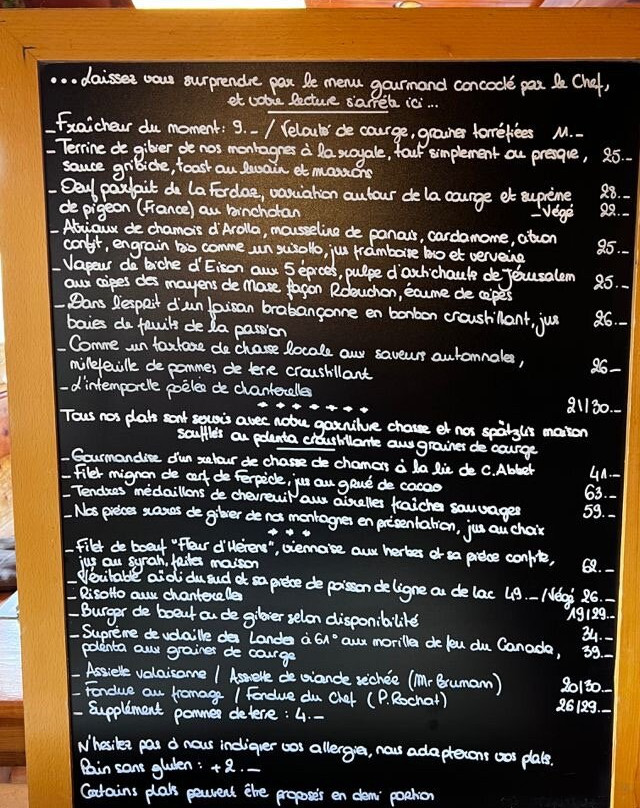 ...Laissez vous surprendre par le menu gourmand concocté par le Chef,
et votre lecture s'arrête ici...
- Fraîcheur du moment : 9.- / Velouté de courge, graines torréfiées 11.-
- Terrine de gibier de nos montagnes à la royale, tout simplement ou presque, 25.-
sauce gribiche, toast au levain et marrons
- Oeuf parfait de La Fordaz, variation autour de la courge et suprême 28.-
de pigeon (France) au binchotan - Végé 22.-
- Atriaux de chamois d'Arolla, mousseline de panais, cardamome, citron
confit, engrain bio comme un risotto, jus framboise bio et verveine 25.-
- Vapeur de biche d'Eison aux 5 épices, pulpe d'artichauts de Jérusalem
aux cèpes des mayens de Mase façon Robuchon, écume de cèpes 25.-
- Dans l'esprit d'un faisan brabançonne en bonbon croustillant, jus 26.-
baies de fruits de la passion
- Comme un tartare de chasse locale aux saveurs automnales,
millefeuille de pommes de terre croustillant 26-
- L'intemporelle poêlée de chanterelles 21/30.-
Tous nos plats sont servis avec notre garniture chasse et nos spätzlis maison
soufflés ou polenta croustillante aux graines de courge
- Gourmandise d'un retour de chasse de chamois à la lie de C.Abbet 41.-
- Filet mignon de cerf de Ferpècle, jus au grué de cacao 63.-
- Tendres médaillons de chevreuil aux airelles fraîches sauvages 59.-
- Nos pièces rares de gibier de nos montagnes en présentation, jus au choix
- Filet de boeuf "Fleur d'Hérens", viennoise aux herbes et sa pièce confite,
jus au syrah, frites maison 62.-
- Véritable aïoli du sud et sa pièce de poisson de ligne ou de lac 49.-/Végé 26.-
- Risotto aux chanterelles 19/29.-
- Burger de boeuf ou de gibier selon disponibilité 34.-
- Suprême de volaille des Landes à 61° aux morilles de feu du Canada, 39.-
polenta aux graines de courge
- Assiette valaisanne / Assiette de viande séchée (Mr Brumann) 20/30.-
- Fondue au fromage / Fondue du Chef (P.Rochat) 26/29.-
- Supplément pommes de terre : 4.-
N'hésitez pas à nous indiquer vos allergies, nous adapterons vos plats.
Pain sans gluten : +2.-
Certains plats peuvent être proposés en demi portion